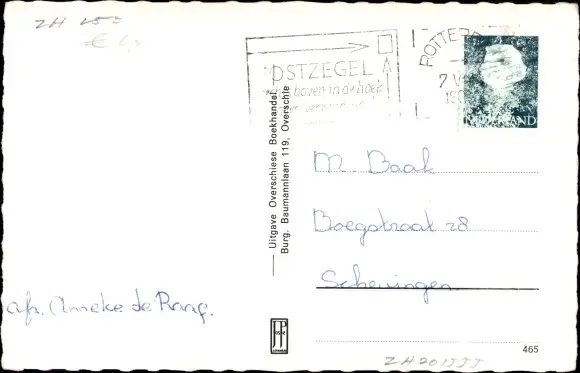 ZH
ROTTE
OSTZEGEL
boven in de hoek
7 V
NEDERLAND
Uitgave Overschiese Boekhandel
Burg. Baumannlaan 119, Overschie
M. Baak
Boegstraat 28
Scheveningen
afz. Anneke de Raaf.
JP
465
ZH201JJJ